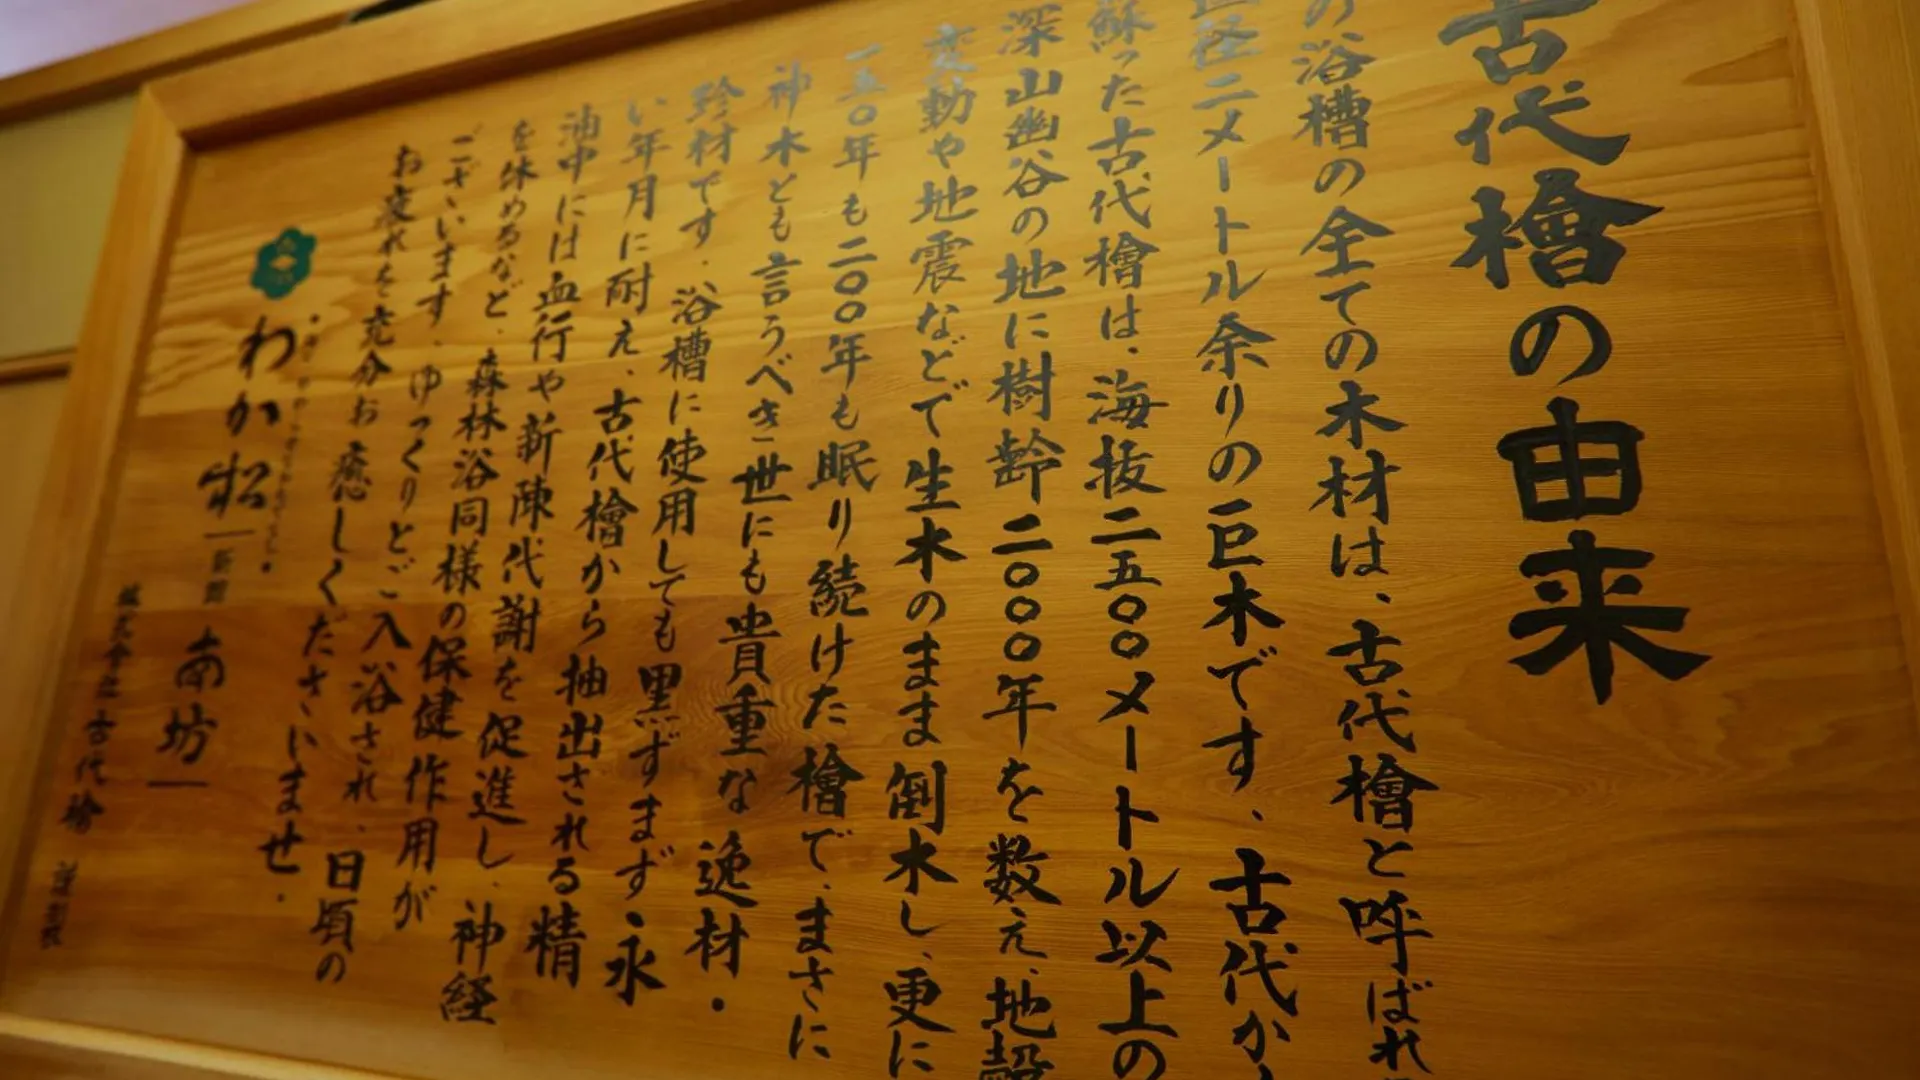 古代檜の由来
の浴槽の全ての木材は、古代檜と呼ばれ
直径二メートル余りの巨木です。古代か
蘇った古代檜は、海抜二五〇〇メートル以上の
深山幽谷の地に樹齢二〇〇〇年を数え、地殻
変動や地震などで生木のまま倒木し、更に
一五〇年も二〇〇年も眠り続けた檜で、まさに
神木とも言うべき世にも貴重な逸材・
珍材です。浴槽に使用しても黒ずまず永
い年月に耐え、古代檜から抽出される精
油中には血行や新陳代謝を促進し、神経
を休めるなど、森林浴同様の保健作用が
ございます。ゆっくりとご入浴され、日頃の
お疲れを充分お癒しくださいませ。
わか松
新館 南坊
株式会社 古代檜